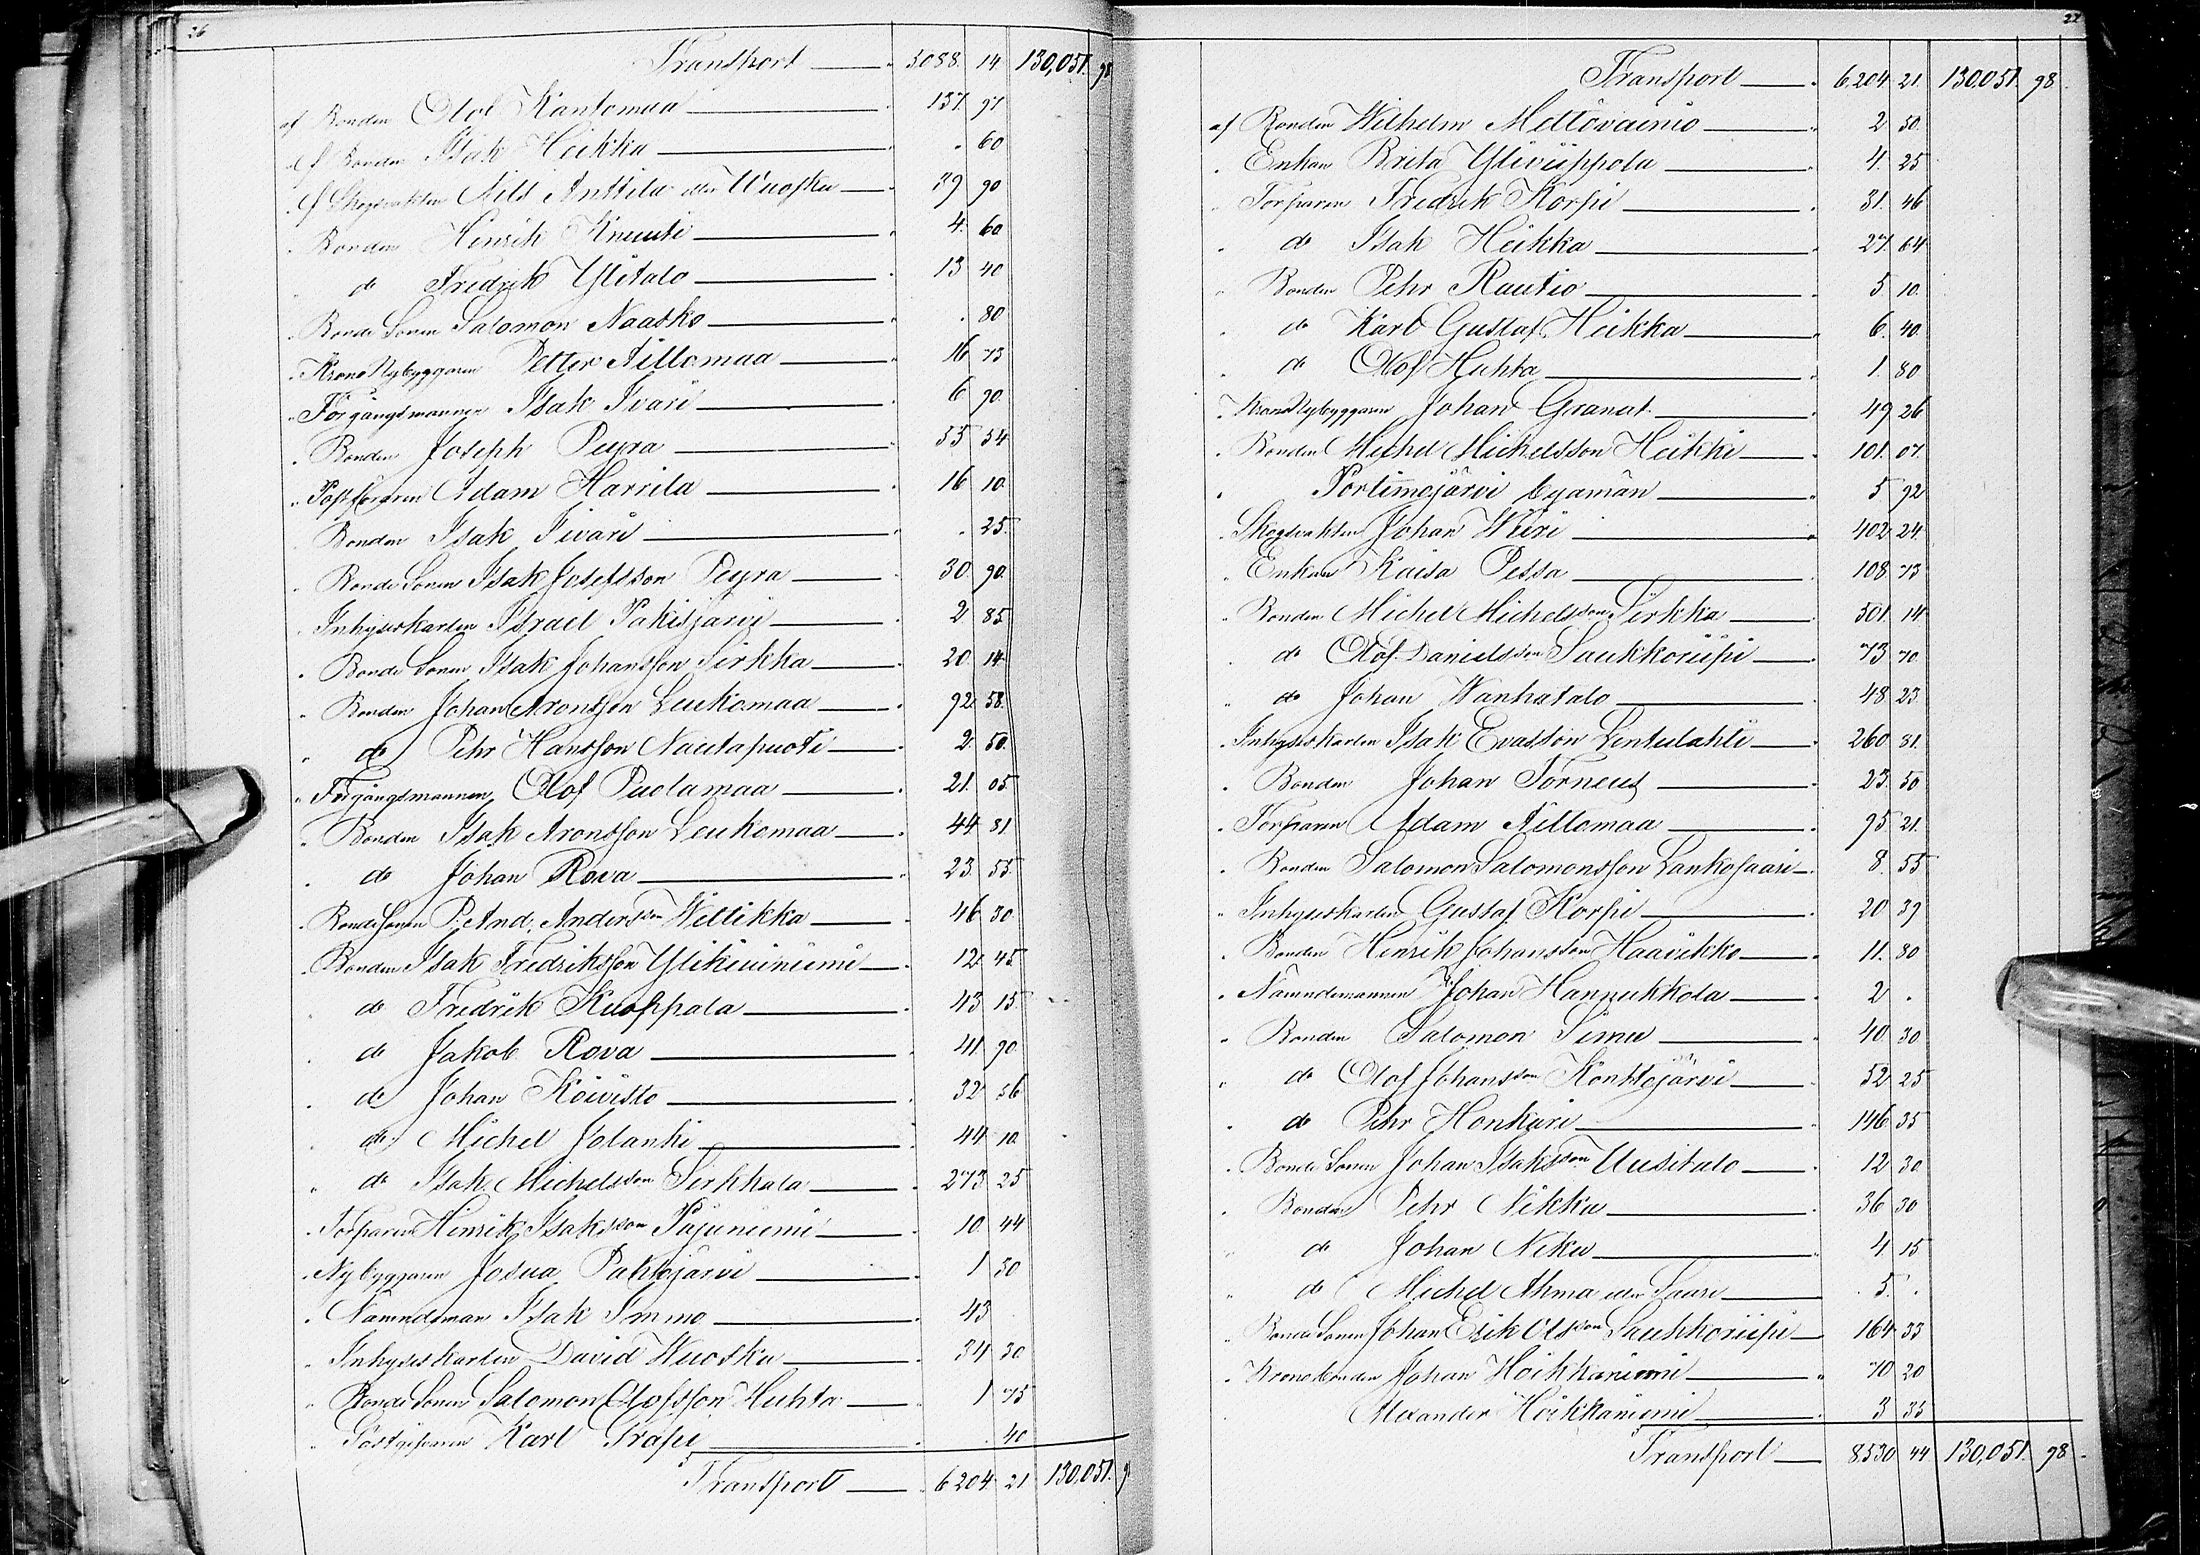 26
Transport — 5088. 14 130,051. 98
af Bonden Olof Kantomaa — 137 97
af Bonden Isak Heikka — . 60
af Skogvakten Nils Anttila eller Wuosku — 39 90
" Bonden Henrik Knuuti — 4. 60
" do Fredrik Ylitalo — 13 40
" Bonde Sonen Salomon Naasko — . 80
" Krono Nybyggaren Petter Aillomaa — 16 73
" Förgångsmannen Isak Ivari — 6 90.
" Bonden Joseph Peura — 55 54
" Postföraren Adam Harrila — 16 10.
" Bonden Isak Iivari — . 25.
" Bonde Sonen Isak Josefsson Peyra — 30. 90.
" Inhyseskarlen Israel Pakisjarvi — 2 85.
" Bonde Sonen Isak Johansson Sirkka — 20. 14
" Bonden Johan Aronsson Leukomaa — 92 58.
" do Pehr Hansson Nautapuoti — 2. 50.
" Förgångsmannen Olof Puolamaa — 21. 05.
" Bonden Isak Aronsson Leukomaa — 44 81
" do Johan Rova — 23. 55.
" Bonde Sonen P. And. Andersson Willikka — 46 30.
" Bonden Isak Fredriksson Ylikiiniemi — 12 45
" do Fredrik Kuoppala — 43 15.
" do Jakob Rova — 41 90.
" do Johan Koivisto — 32 56
" do Michel Jolanki — 44 10.
" do Isak Michelsson Sirkkala — 273 25
" Torparen Hinrik Isaksson Pajuniemi — 10. 44
" Nybyggaren Josua Pakisjärvi — 1 50
" Nämndeman Isak Immo — 43
" Inhyses Karlen David Wuosku — 34 30
" Bonde Sonen Salomon Olofsson Huhta — 1 75
" Karl Trasti — . 40
Transport — 6204 21 130,051. 9
22
Transport — 6,204 21. 130,051. 98.
af Bonden Wilhelm Mettövainio — 2 30.
" Enkan Brita Yliviippola — 4. 25
" Torparen Fredrik Korpi — 31. 46
" do Isak Heikka — 27. 64
" Bonden Pehr Rautio — 5 10.
" do Karl Gustaf Heikka — 6. 40
" do Olof Huhta — 1. 80
" Krono Nybyggaren Johan Granat. — 49 26
" Bonden Michel Michelsson Heikki — 101. 07.
" Portimojärvi byamän — 5 92
" Skogvakten Johan Wiiri — 402 24.
" Enkan Kaisa Pessa — 108 73
" Bonden Michel Michelsson Sirkka — 301. 14
" do Olof Danielsson Saukkoriipi — 73 70.
" do Johan Wanhatalo — 48 23.
" Inhyseskarlen Isak Evasson Lentulahti — 260 81.
" Bonden Johan Torneus — 23. 30
" Torparen Adam Aillomaa — 95 21.
" Bonden Salomon Salomonsson Lankosaari — 8. 55
" Inhyseskarlen Gustaf Korpi — 20 39
" Bonden Henrik Johansson Haavikko — 11. 80
" Nämndemannen Johan Hannukkola — 2 .
" Bonden Salomon Simu — 40. 30
" do Olof Johansson Konttojärvi — 52 25
" do Pehr Honkari — 146 35
" Bonde Sonen Johan Isaksson Uusitalo — 12 30
" Bonden Pehr Nikku — 36 30
" do Johan Niku — 4. 15
" do Michel Ahma eller Saari — 5. .
" Bonde Sonen Johan Erik Olsson Saukkoriipi — 164 33
" Kronobonden Johan Hoikkaniemi — 70 20
" Alexander Hoikkaniemi — 3 35
Transport — 8,530 44 130,051. 98.